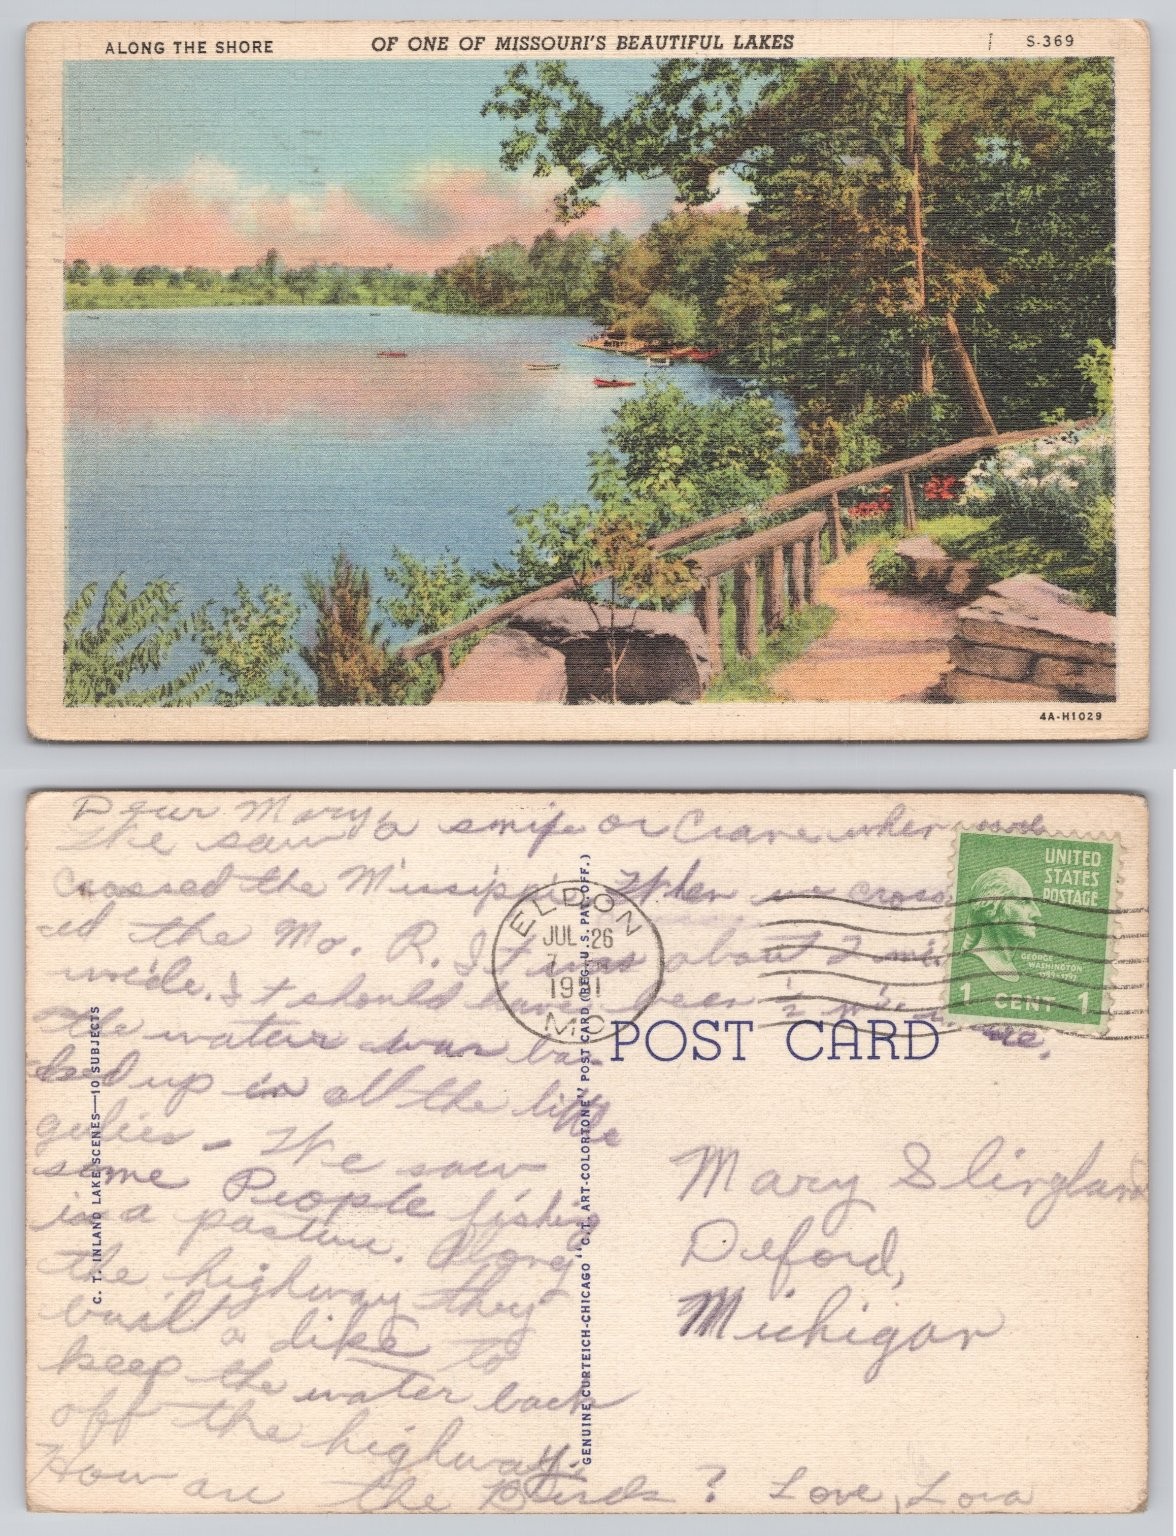 ALONG THE SHORE OF ONE OF MISSOURI'S BEAUTIFUL LAKES S-369
4A-H1029
Dear Mary,
We saw a snipe or Crane when we
crossed the Missisippi. When we cross
ed the Mo. R. It was about 2 mi.
wide. It should have been ½ mile
the water was bac
ked up in all the little
gulies - We saw
some People fishing
in a pasture. Along
the highway they
built a dike to
keep the water back
off the highway.
How are the Birds? Love, Lora
C. T. INLAND LAKE SCENES—10 SUBJECTS
GENUINE CURTEICH-CHICAGO "C. T. ART-COLORTONE" POST CARD (REG. U.S. PAT. OFF.)
ELDON
JUL 26
1951
MO
UNITED
STATES
POSTAGE
GEORGE
WASHINGTON
1789-1797
1 CENT 1
POST CARD
Mary Slingland
Deford,
Michigan